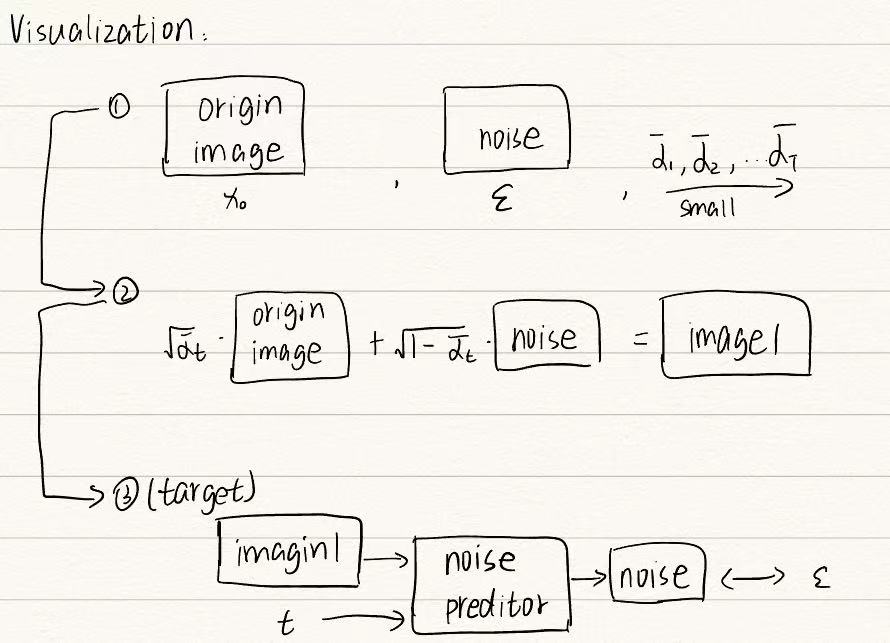 Visualization:
① origin image , noise , ᾱ₁, ᾱ₂, ... ᾱ_T
x₀ ε small
②
√ᾱₜ · origin image + √1-ᾱₜ · noise = image1
③ (target)
imagin1 → noise preditor → noise ↔ ε
t